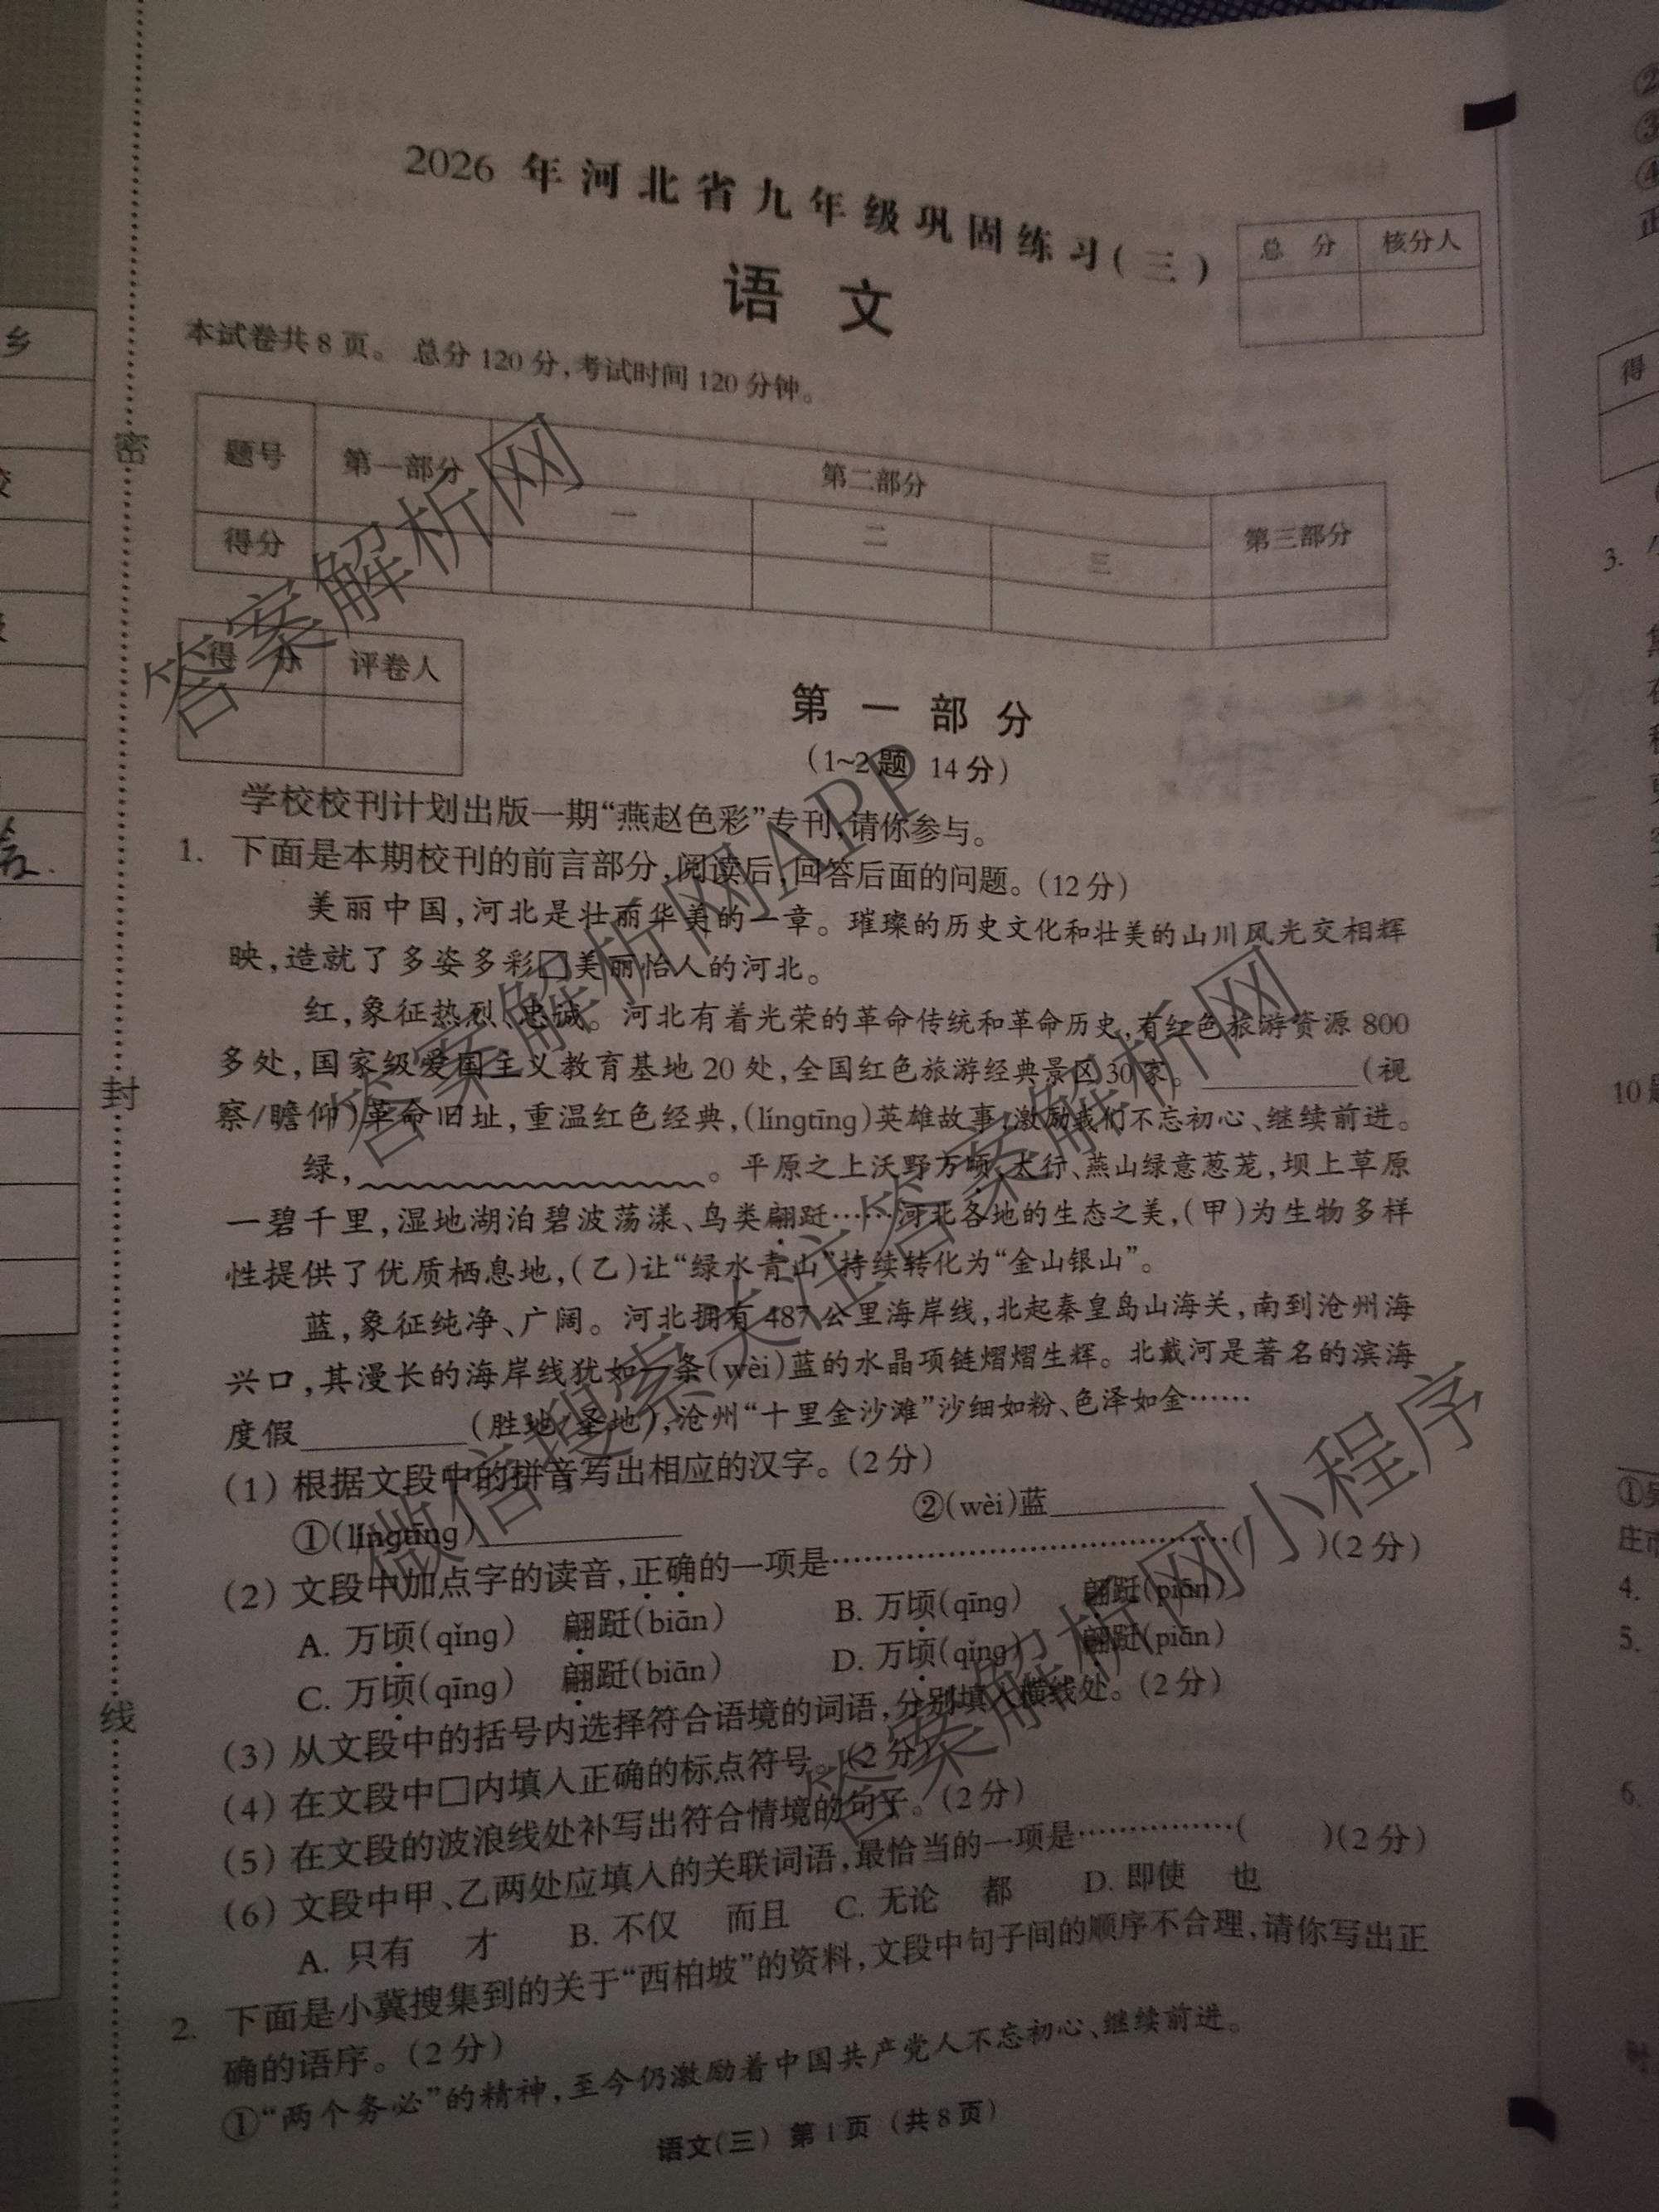 2026年河北省九年级巩固练习(三)
语 文
总 分 核分人
本试卷共8页。总分120分,考试时间120分钟。
题号 第一部分 第二部分 第三部分
一 二 三
得分
得 分 评卷人
第一部分
(1~2题 14分)
学校校刊计划出版一期“燕赵色彩”专刊,请你参与。
1. 下面是本期校刊的前言部分,阅读后,回答后面的问题。(12分)
美丽中国,河北是壮丽华美的一章。璀璨的历史文化和壮美的山川风光交相辉
映,造就了多姿多彩□美丽怡人的河北。
红,象征热烈、忠诚。河北有着光荣的革命传统和革命历史,有红色旅游资源800
多处,国家级爱国主义教育基地20处,全国红色旅游经典景区30家。________(视
察/瞻仰)革命旧址,重温红色经典,(língtīng)英雄故事,激励我们不忘初心、继续前进。
绿,________。平原之上沃野万顷,太行、燕山绿意葱茏,坝上草原
一碧千里,湿地湖泊碧波荡漾、鸟类翩跹……河北各地的生态之美,(甲)为生物多样
性提供了优质栖息地,(乙)让“绿水青山”持续转化为“金山银山”。
蓝,象征纯净、广阔。河北拥有487公里海岸线,北起秦皇岛山海关,南到沧州海
兴口,其漫长的海岸线犹如一条(wèi)蓝的水晶项链熠熠生辉。北戴河是著名的滨海
度假________(胜地/圣地),沧州“十里金沙滩”沙细如粉、色泽如金……
(1)根据文段中的拼音写出相应的汉字。(2分)
①(língtīng)________ ②(wèi)蓝________
(2)文段中加点字的读音,正确的一项是……………………………………( )(2分)
A. 万顷(qǐng) 翩跹(biān) B. 万顷(qīng) 翩跹(piān)
C. 万顷(qīng) 翩跹(biān) D. 万顷(qǐng) 翩跹(piān)
(3)从文段中的括号内选择符合语境的词语,分别填入横线处。(2分)
(4)在文段中□内填入正确的标点符号。(2分)
(5)在文段的波浪线处补写出符合情境的句子。(2分)
(6)文段中甲、乙两处应填入的关联词语,最恰当的一项是……………( )(2分)
A. 只有 才 B. 不仅 而且 C. 无论 都 D. 即使 也
2. 下面是小冀搜集到的关于“西柏坡”的资料,文段中句子间的顺序不合理,请你写出正
确的语序。(2分)
①“两个务必”的精神,至今仍激励着中国共产党人不忘初心、继续前进。
语文(三) 第1页 (共8页)
密
封
线
乡
②
③
④
正
得
3.
10题
4.
5.
6.
答案解析网
答案解析网APP
微信搜索关注答案解析网
答案解析网小程序